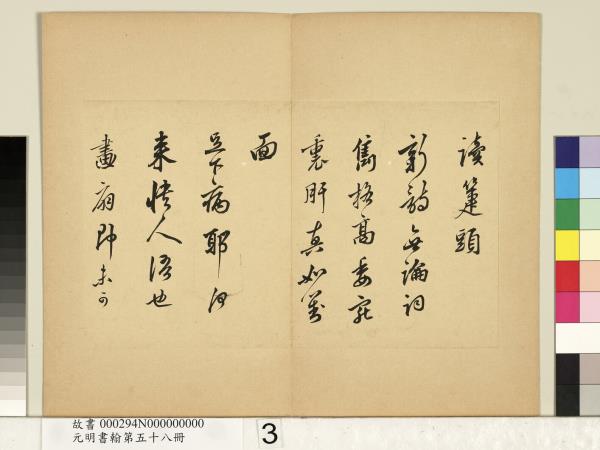 讀箑頭
新詩無論詞
雋格高委宛
裏肝真如萬
面
足下病耶何
來恠人語也
畫扇即未可
故書 000294N000000000
元明書翰第五十八冊
3